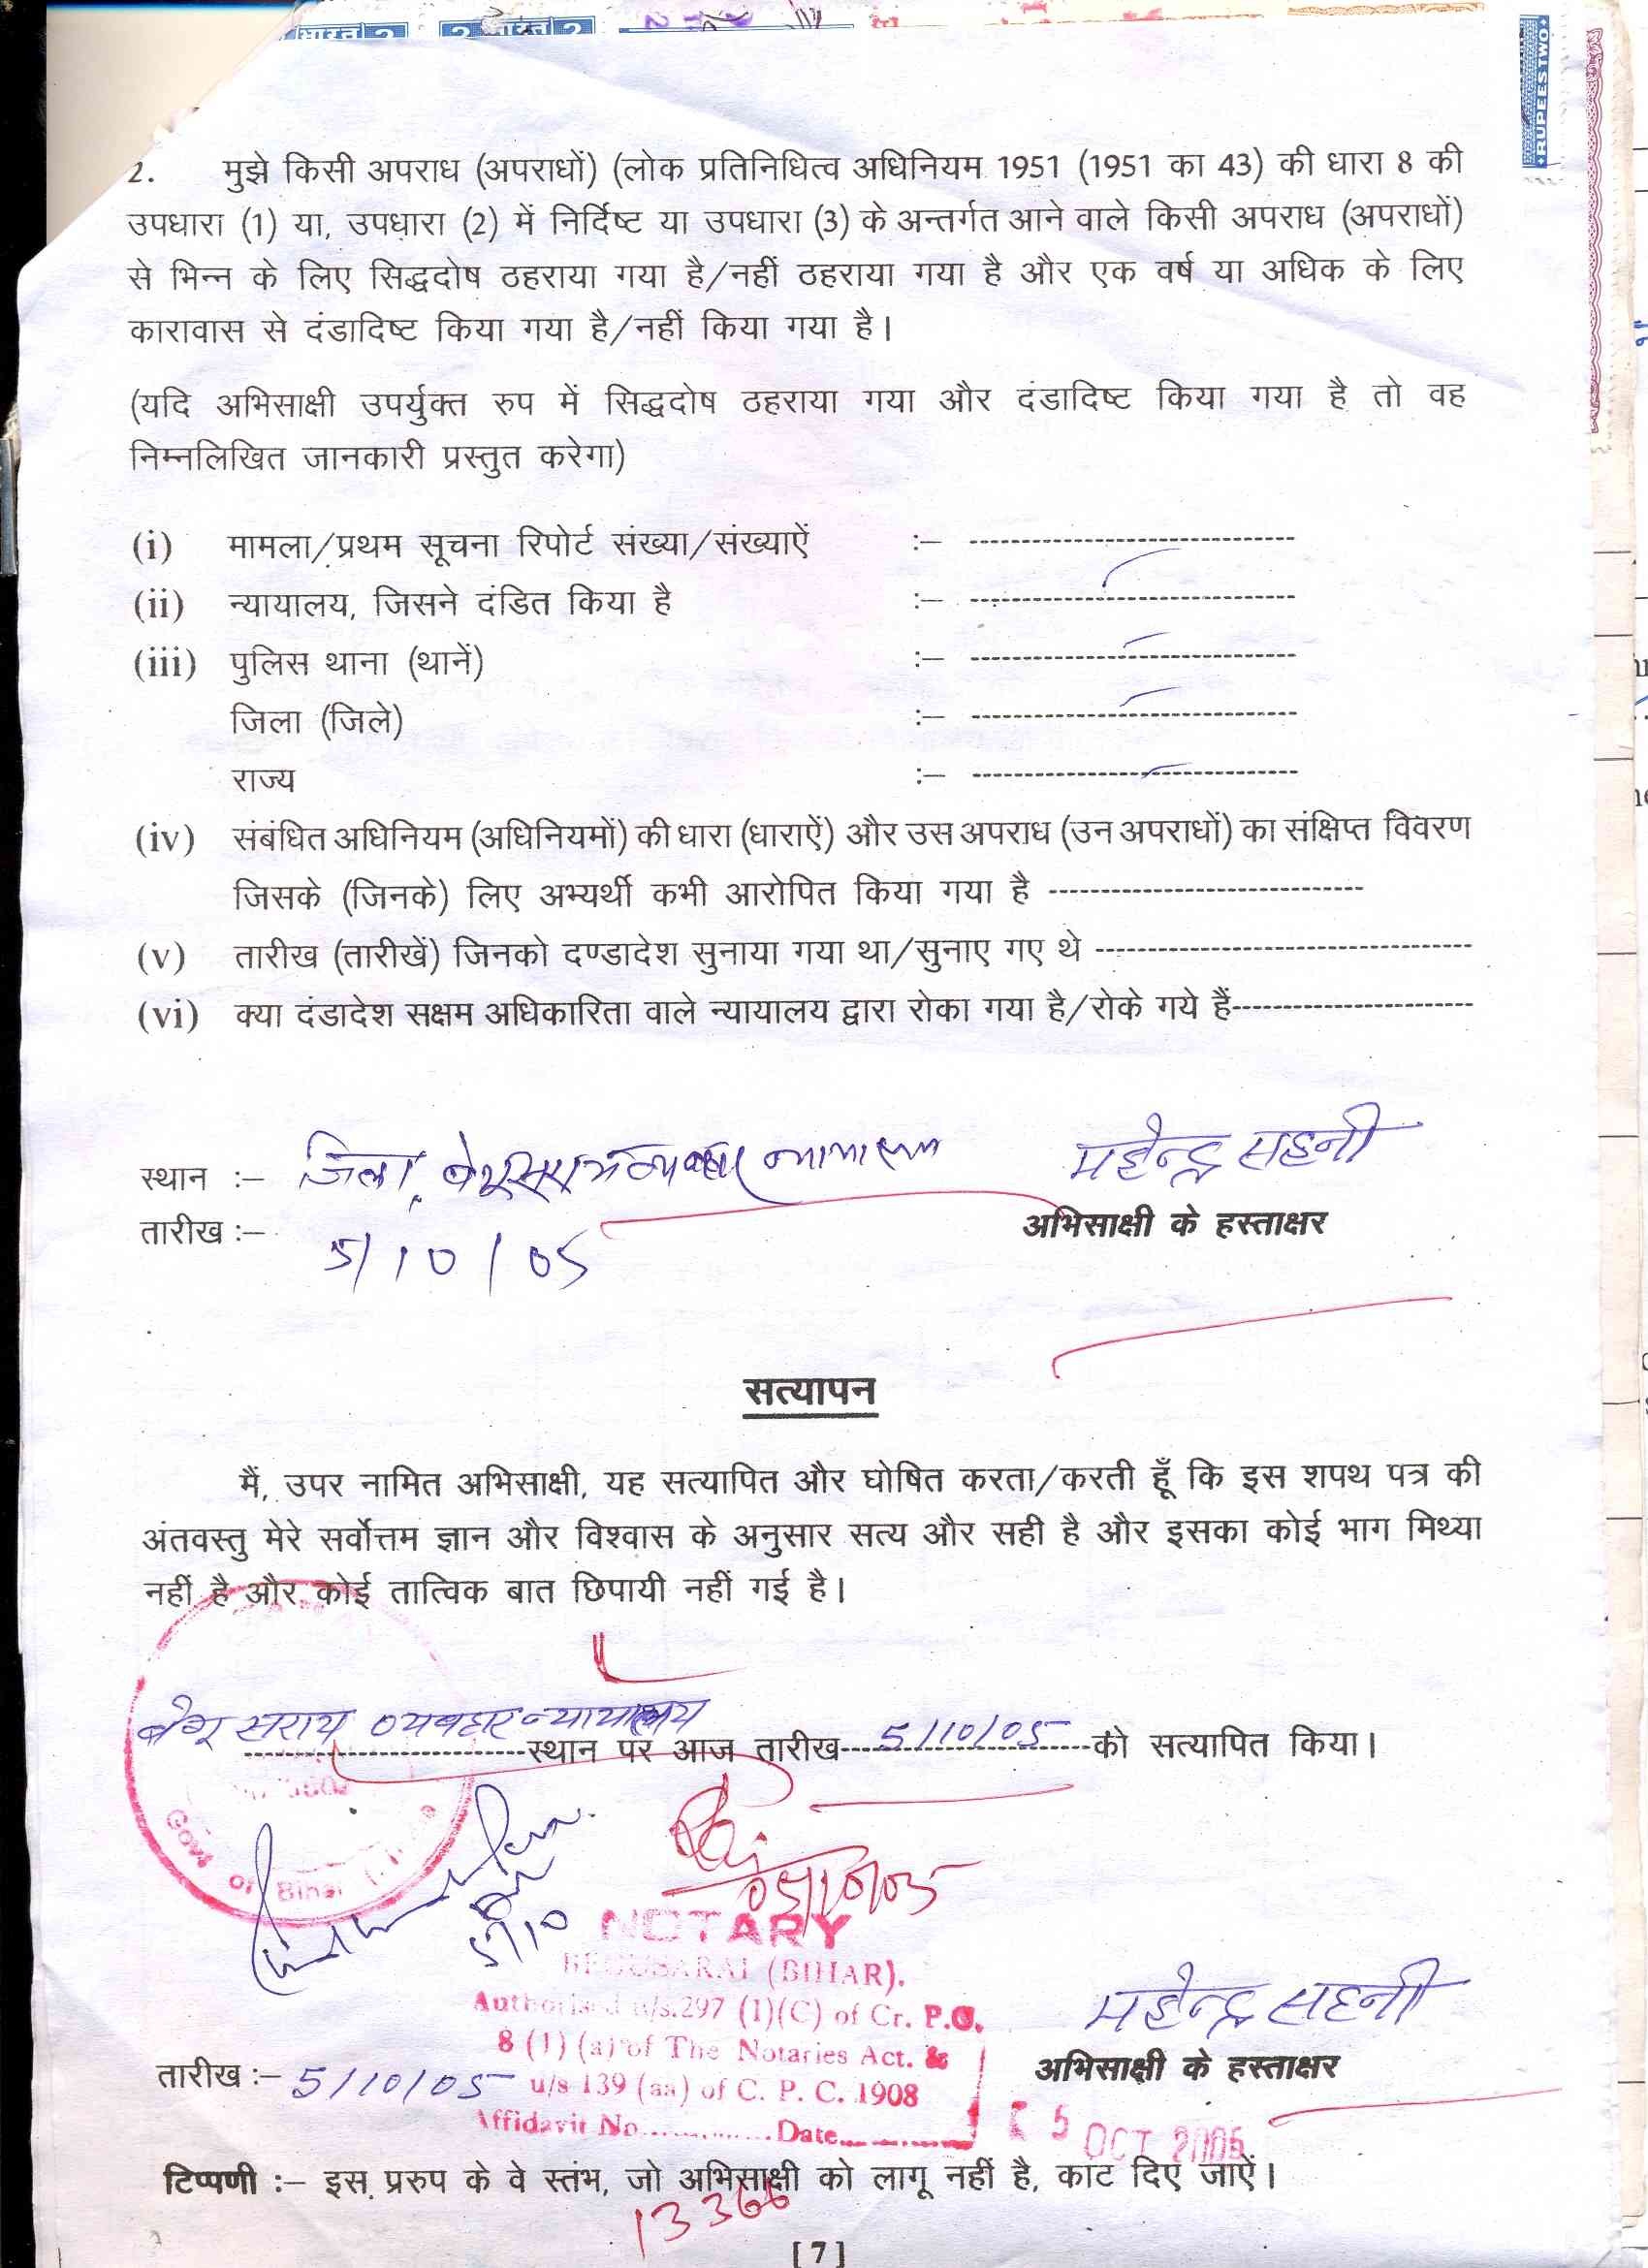 भारत 2 2 भारत 2
RUPEES TWO
2. मुझे किसी अपराध (अपराधों) (लोक प्रतिनिधित्व अधिनियम 1951 (1951 का 43) की धारा 8 की
उपधारा (1) या, उपधारा (2) में निर्दिष्ट या उपधारा (3) के अन्तर्गत आने वाले किसी अपराध (अपराधों)
से भिन्न के लिए सिद्धदोष ठहराया गया है/नहीं ठहराया गया है और एक वर्ष या अधिक के लिए
कारावास से दंडादिष्ट किया गया है/नहीं किया गया है।
(यदि अभिसाक्षी उपर्युक्त रुप में सिद्धदोष ठहराया गया और दंडादिष्ट किया गया है तो वह
निम्नलिखित जानकारी प्रस्तुत करेगा)
(i) मामला/प्रथम सूचना रिपोर्ट संख्या/संख्याऐं :– ---------------
(ii) न्यायालय, जिसने दंडित किया है :– ---------------
(iii) पुलिस थाना (थानें) :– ---------------
जिला (जिले) :– ---------------
राज्य :– ---------------
(iv) संबंधित अधिनियम (अधिनियमों) की धारा (धाराऐं) और उस अपराध (उन अपराधों) का संक्षिप्त विवरण
जिसके (जिनके) लिए अभ्यर्थी कभी आरोपित किया गया है ---------------
(v) तारीख (तारीखें) जिनको दण्डादेश सुनाया गया था/सुनाए गए थे ---------------
(vi) क्या दंडादेश सक्षम अधिकारिता वाले न्यायालय द्वारा रोका गया है/रोके गये हैं---------------
स्थान :– जिला, बेगूसराय व्यवहार न्यायालय महेन्द्र सहनी
तारीख :– 5/10/05 अभिसाक्षी के हस्ताक्षर
सत्यापन
मैं, उपर नामित अभिसाक्षी, यह सत्यापित और घोषित करता/करती हूँ कि इस शपथ पत्र की
अंतवस्तु मेरे सर्वोत्तम ज्ञान और विश्वास के अनुसार सत्य और सही है और इसका कोई भाग मिथ्या
नहीं है और कोई तात्विक बात छिपायी नहीं गई है।
बेगूसराय व्यवहार न्यायालय स्थान पर आज तारीख 5/10/05 को सत्यापित किया।
Govt of Bihar
5/10
05/10/05
NOTARY
BEGUSARAI (BIHAR).
Authorised u/s.297 (1)(C) of Cr. P.C.
8 (1) (a) of The Notaries Act. &
महेन्द्र सहनी
तारीख :– 5/10/05 u/s 139 (aa) of C. P. C. 1908 अभिसाक्षी के हस्ताक्षर
Affidavit No............. Date.............
5 OCT 2005
टिप्पणी :– इस प्ररुप के वे स्तंभ, जो अभिसाक्षी को लागू नहीं है, काट दिए जाऐं।
13366
[7]